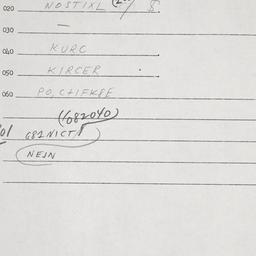 020 NOSTIXL
030 —
040 KURC
050 KIRCER
060 PO, CHIFKEE
(1082040)
01 G82NICT
NEIN